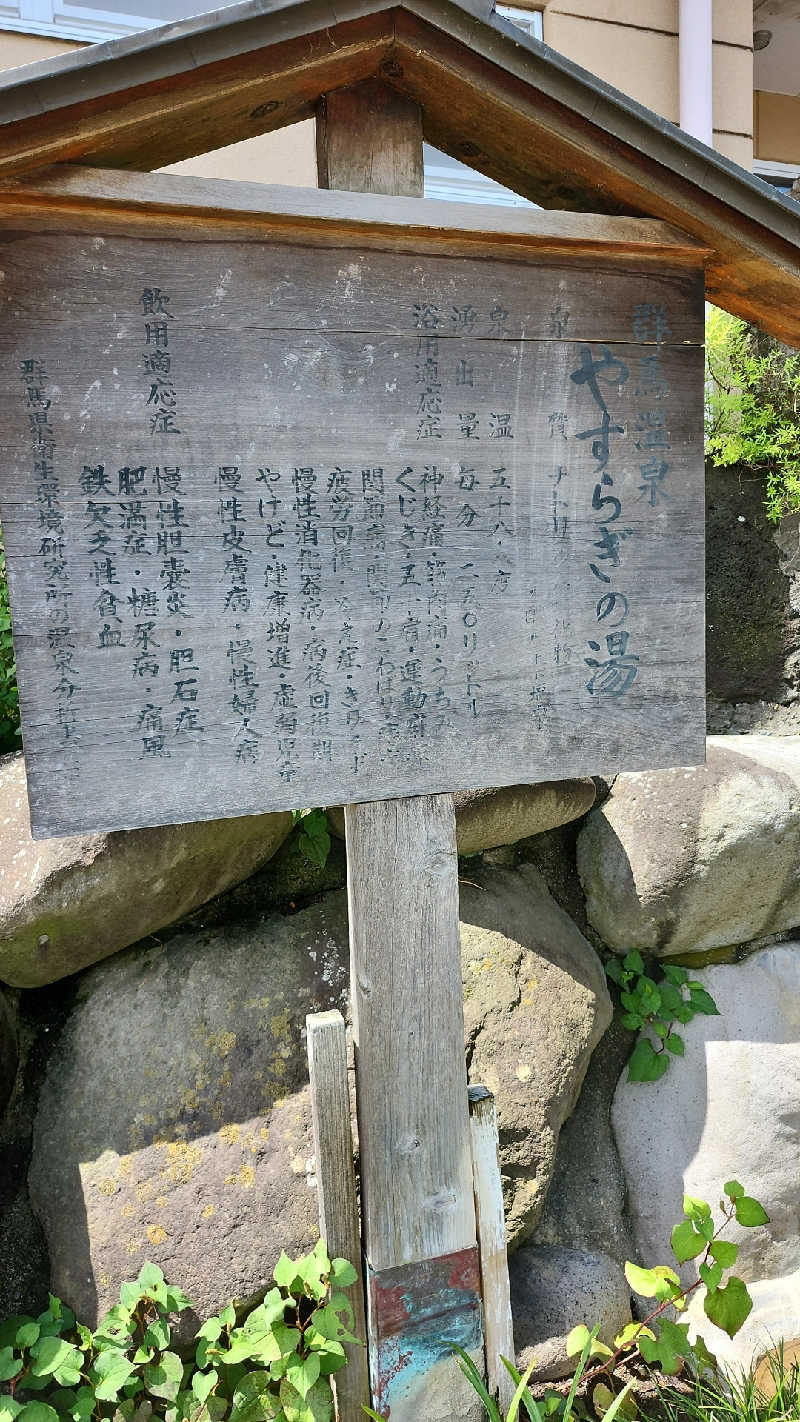 群馬温泉
やすらぎの湯
泉 質 ナトリ
泉 温 五十八・八度
湧出量 毎分 二五〇リットル
浴用適応症 神経痛・筋肉痛・うちみ
くじき・五十肩・運動麻痺
関節病・関節のこわばり
疲労回復・冷え症・きりきず
慢性消化器病・病後回復期
やけど・健康増進・虚弱児童
慢性皮膚病・慢性婦人病
飲用適応症 慢性胆嚢炎・胆石症
肥満症・糖尿病・痛風
鉄欠乏性貧血
群馬県衛生環境研究所の温泉分析